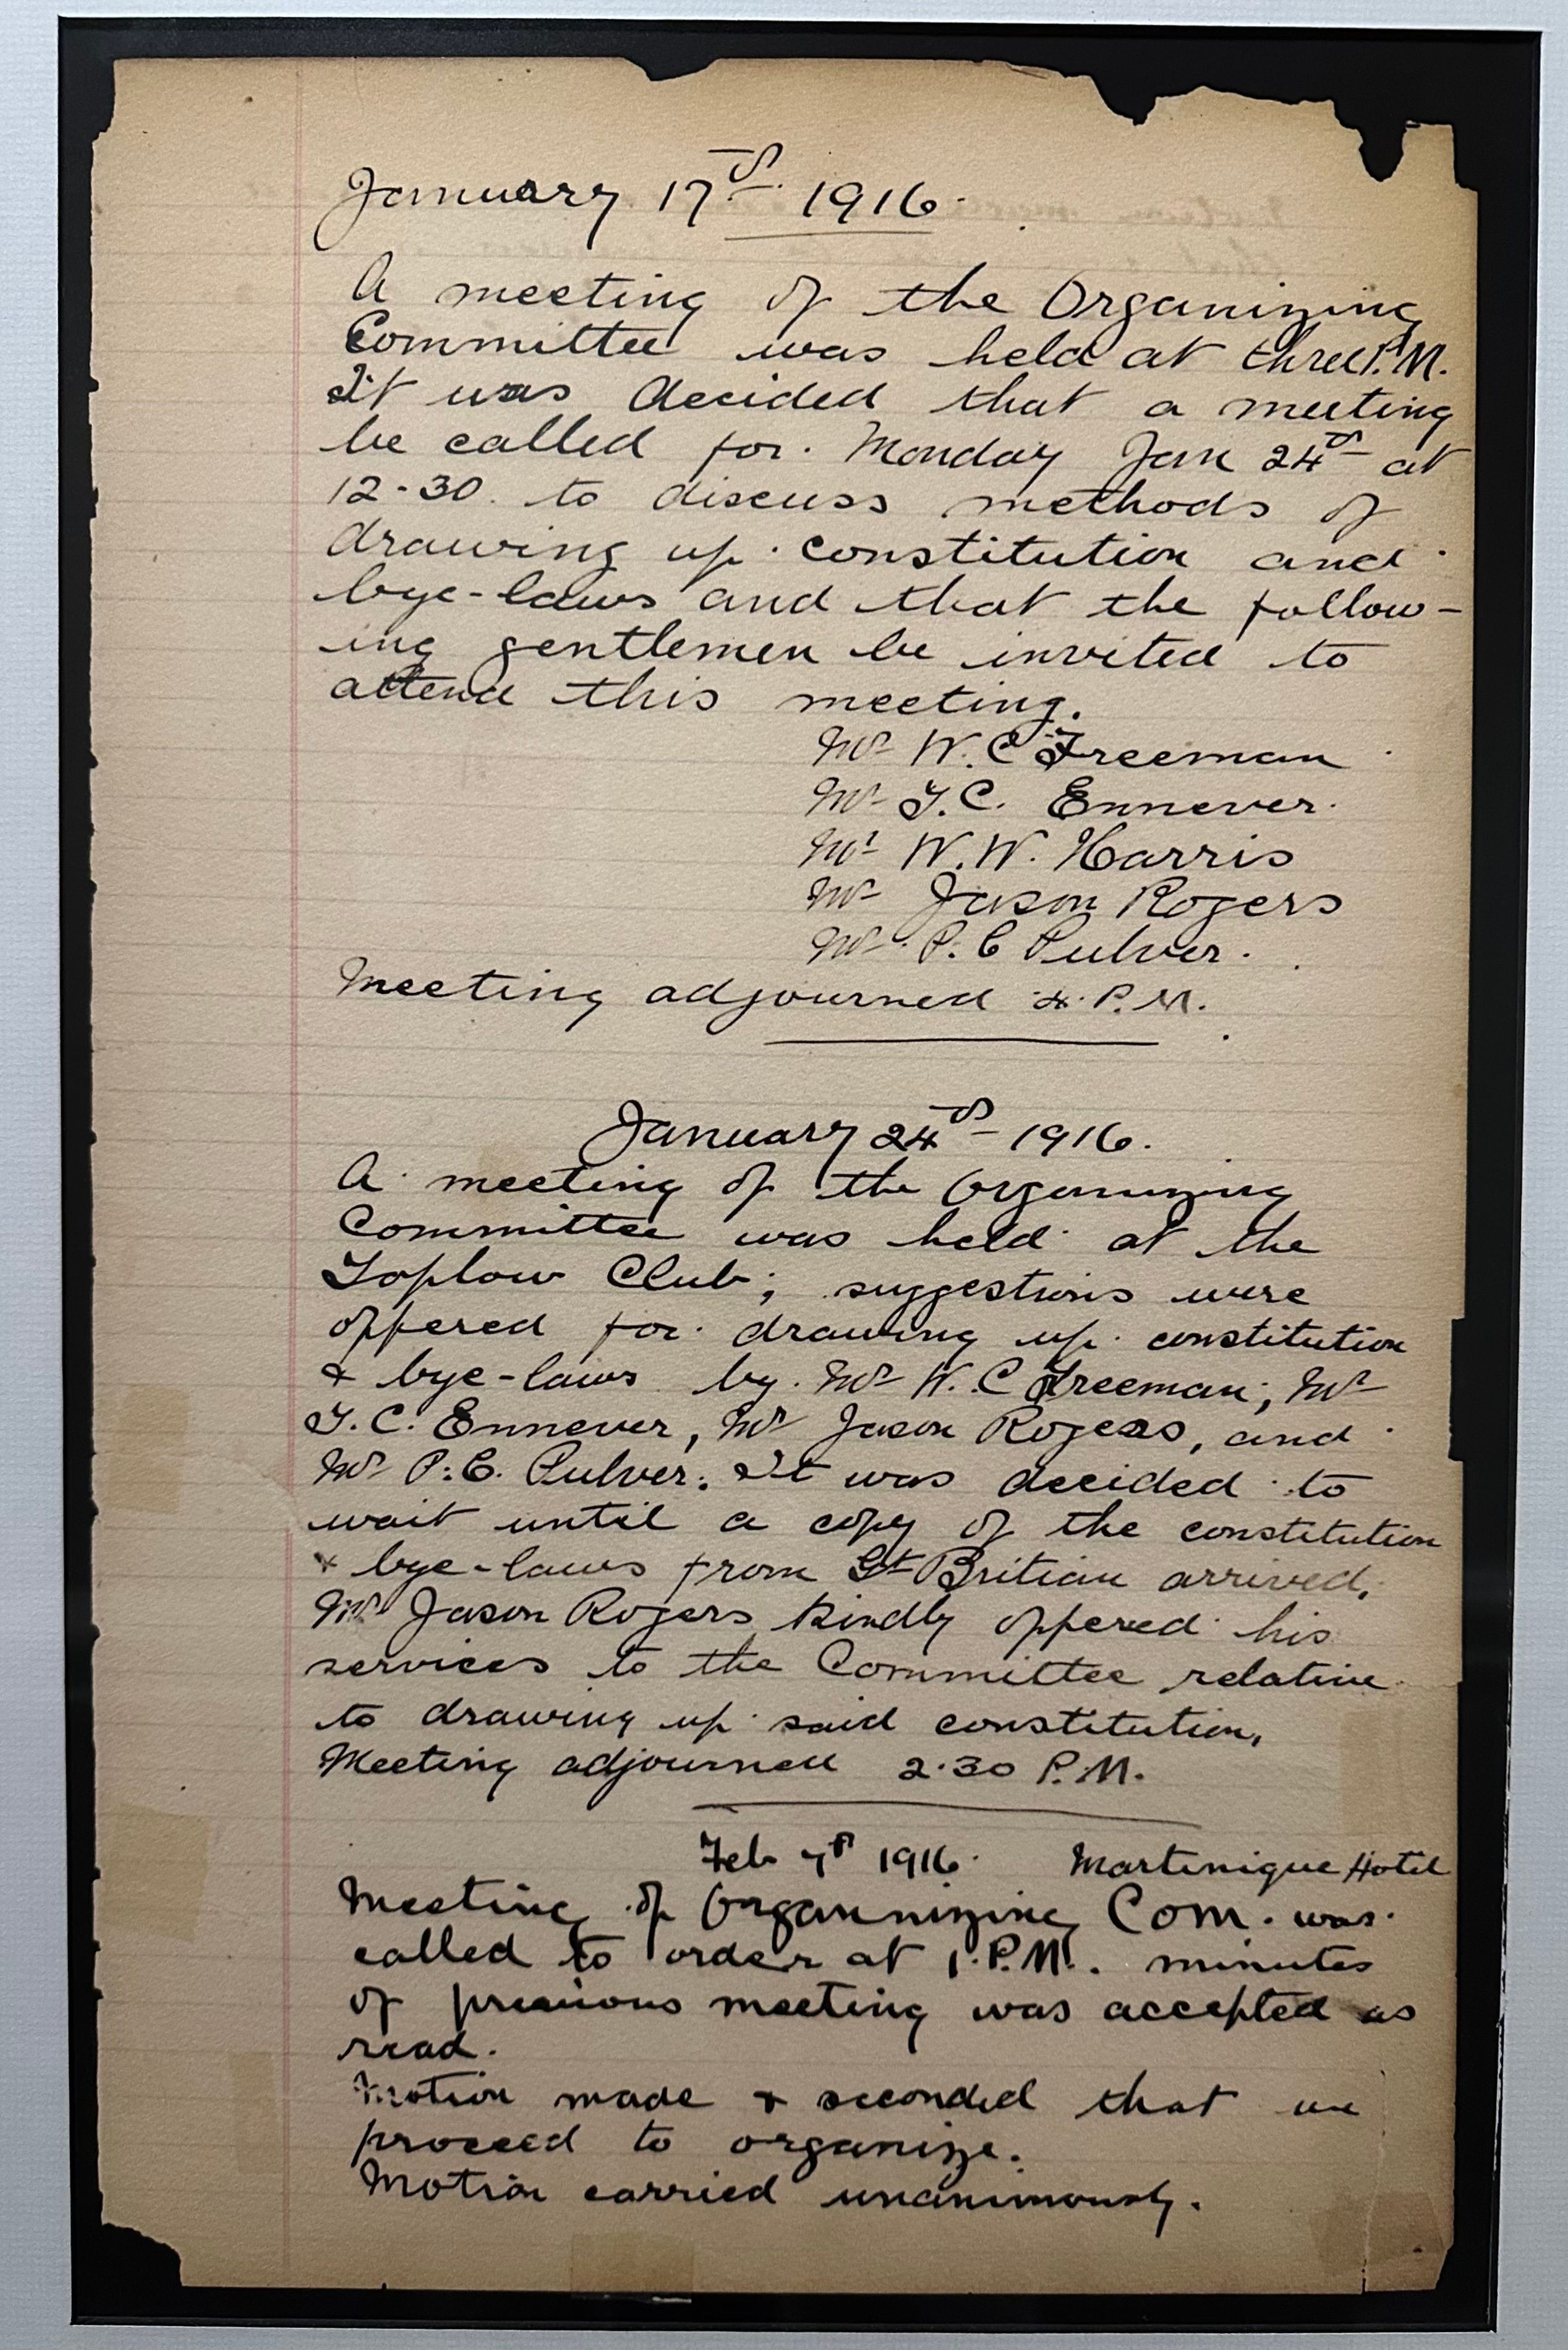 January 17th 1916.
A meeting of the Organizing
Committee was held at three P.M.
It was decided that a meeting
be called for. Monday Jan 24th at
12-30. to discuss methods of
drawing up constitution and
bye-laws and that the follow-
ing gentlemen be invited to
attend this meeting.
Mr W. C Freeman
Mr T. C. Ennever.
Mr W. W. Harris
Mr Jason Rogers
Mr P. C Pulver.
Meeting adjourned 4. P.M.
January 24th 1916.
A meeting of the Organizing
Committee was held at the
Toplow Club; suggestions were
offered for drawing up constitution
& bye-laws by. Mr W. C Freeman, Mr
T. C. Ennever, Mr Jason Rogers, and
Mr P. C. Pulver. It was decided to
wait until a copy of the constitution
& bye-laws from Gt Britian arrived.
Mr Jason Rogers kindly offered his
services to the Committee relative
to drawing up said constitution.
Meeting adjourned 2.30 P.M.
Feb 7th 1916. Martinique Hotel
Meeting of Organnizing Com. was
called to order at 1. P.M. minutes
of previous meeting was accepted as
read.
Motion made & seconded that we
proceed to organize.
Motion carried unanimously.